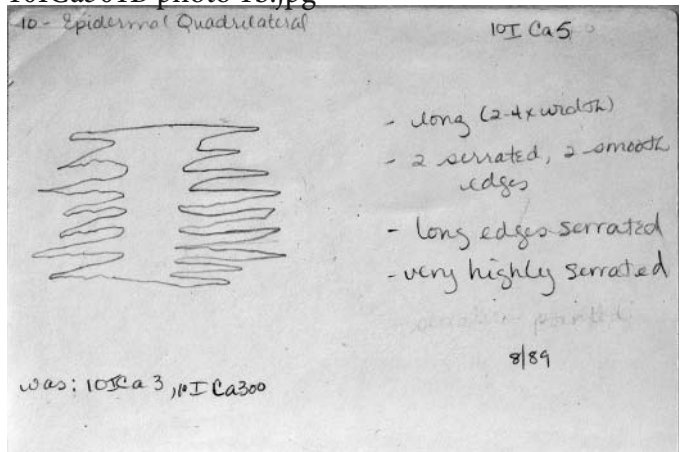 10ICa301B photo 18.jpg
10 - Epidermal Quadrilateral
10I Ca5
- long (2-4x width)
- 2 serrated, 2 smooth
edges
- long edges serrated
- very highly serrated
pointed
8/89
was: 10ICa3, 10I Ca300